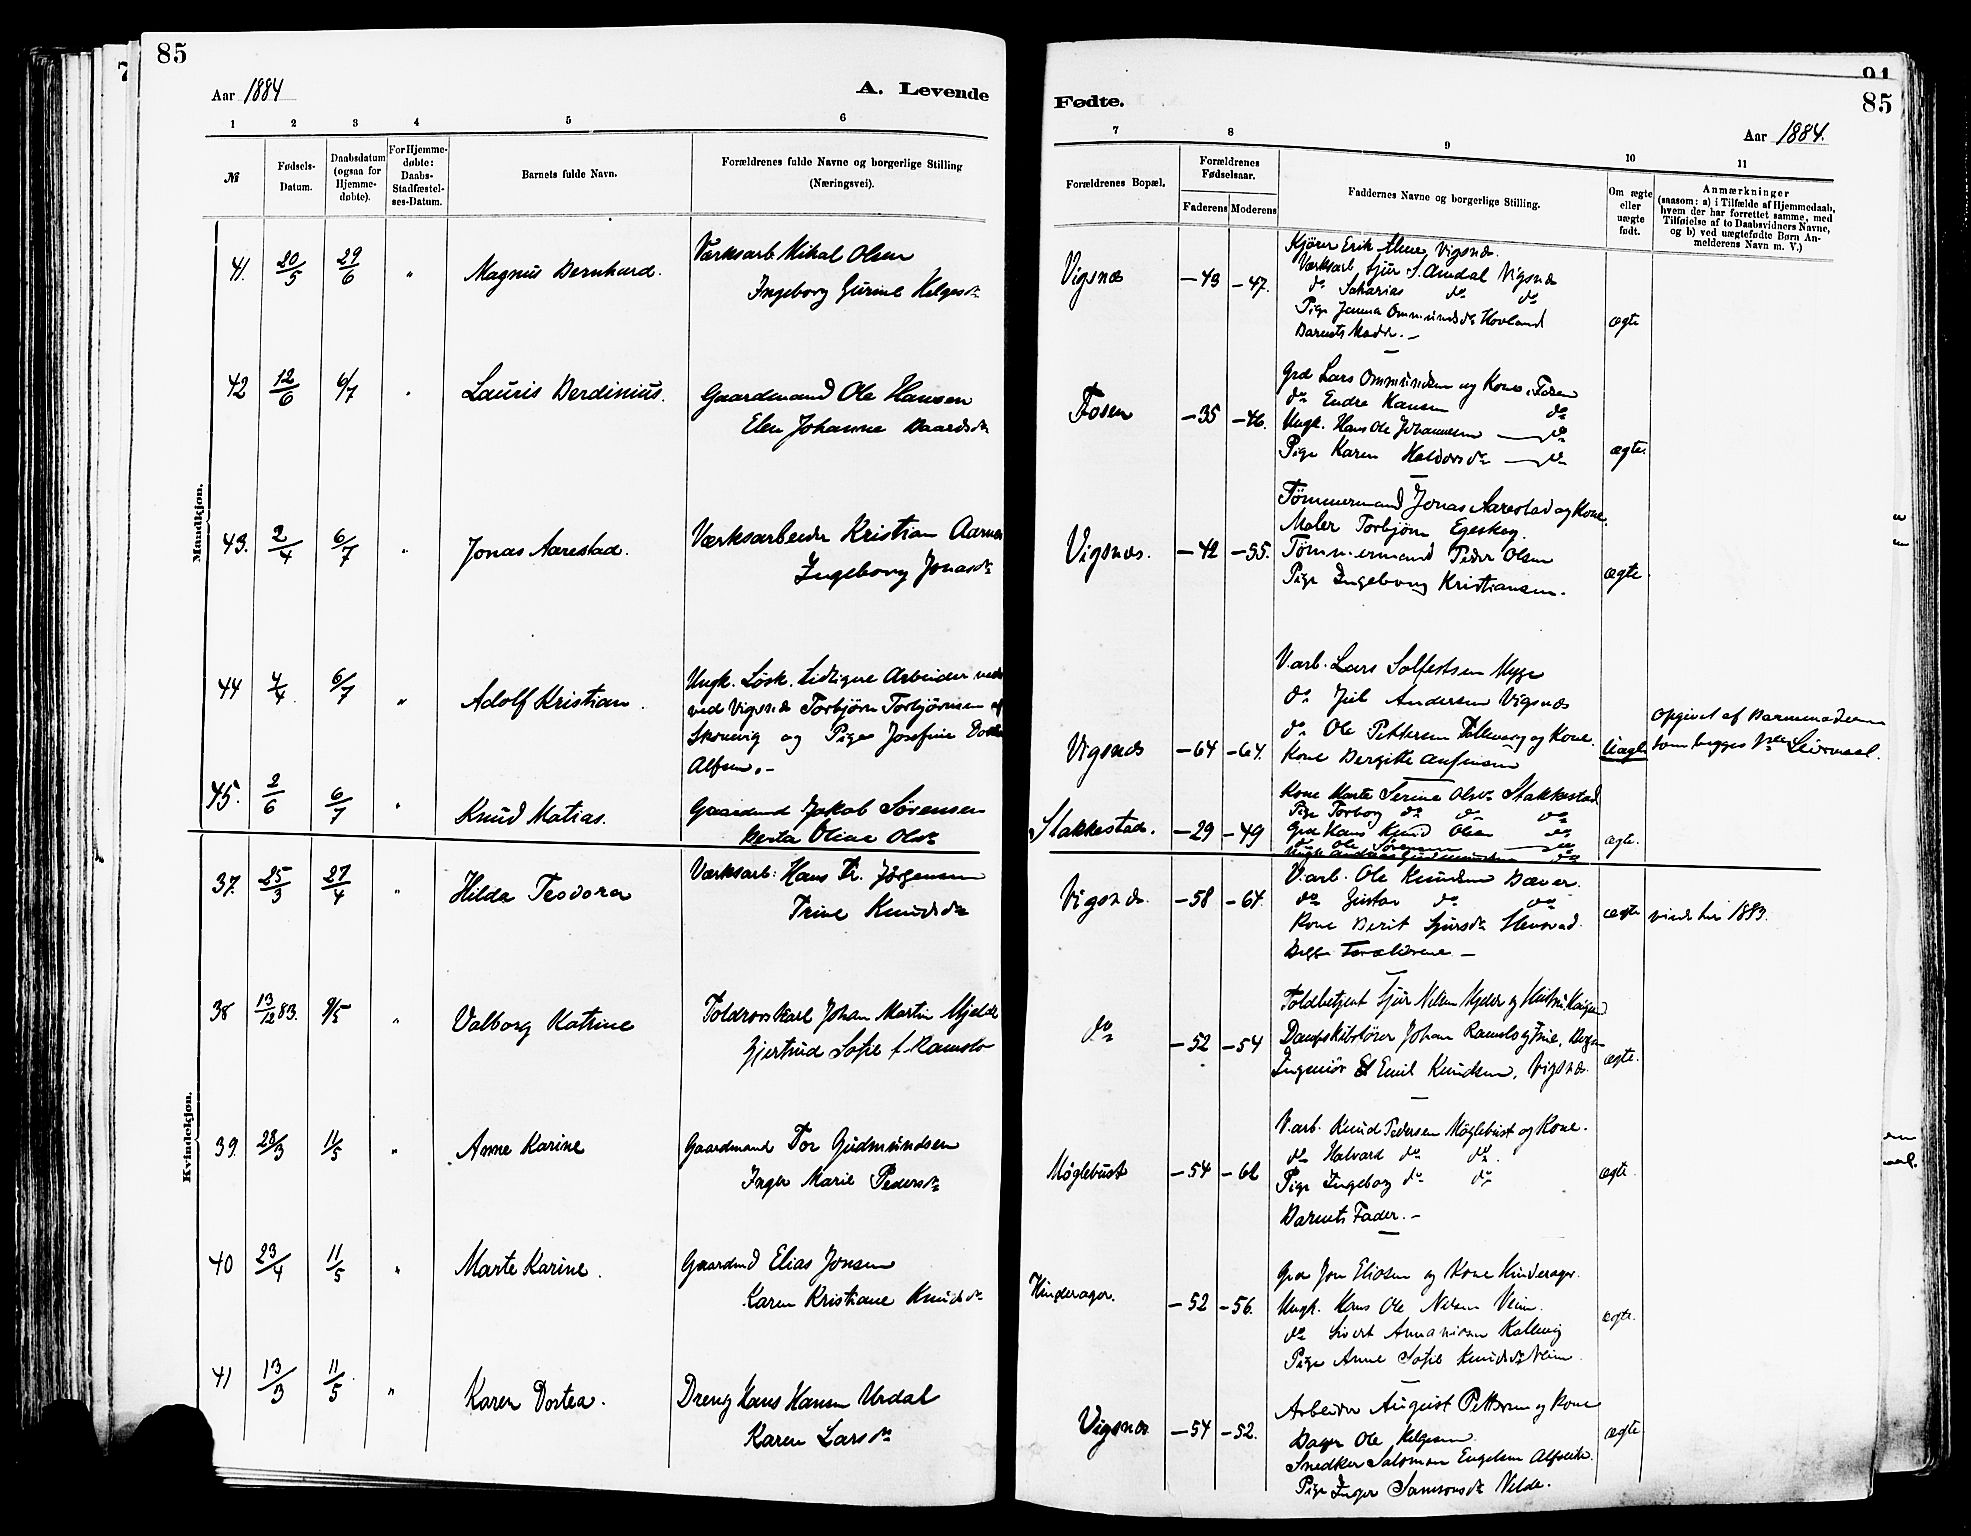 85
Aar 1884
A. Levende
1 2 3 4 5 6
№
Fødsels-Datum.
Daabsdatum (ogsaa for Hjemmedøbte).
For Hjemmedøbte: Daabs-Stadfæstelses-Datum.
Barnets fulde Navn.
Forældrenes fulde Navne og borgerlige Stilling (Næringsvei).
Mandkjøn.
41. 20/5 29/6 " Magnus Bernhard. Værksarb. Mikal Olsen
Ingeborg Gurine Helgesdr
42 12/6 6/7 " Lauris Berdinius. Gaardmand Ole Hansen
Elen Johanne Baardsdr
43. 2/4 6/7 " Jonas Aarestad. Værksarbeider Kristian
Ingeborg Jonasdr
44 4/4 6/7 " Adolf Kristian. Ungk. Løsk. tidligere Arbeider
ved Vigsnæs Torbjørn Torbjørnsen af
og Pige Josefine
45. 2/6 6/7 " Knud Matias. Gaardmd Jakob Sørensen
Berta Oline Olsdr
Kvindekjøn.
37. 25/3 27/4 " Hilda Teodora Værksarb: Hans Fr. Jørgensen
Trine Knudsdr
38 13/12 83. 9/5 " Valborg Katrine Toldrorskarl Johan Martin Mjelde
Gjertrud Sofie f. Ramslo
39. 28/3 11/5 " Anne Karine Gaardmand Tor Gudmundsen
Inger Marie Pedersdr
40 23/4 11/5 " Marte Karine. Gaardmd Elias Jonsen
Karen Kristiane Knudsdr
41 13/3 11/5 " Karen Dortea. Dreng Hans Hansen Urdal
Karen Larsdr
91
85
Fødte.
Aar 1884.
7 8 9 10 11
Forældrenes Bopæl.
Forældrenes Fødselsaar.
Faderens Moderens
Faddernes Navne og borgerlige Stilling.
Om ægte eller uægte født.
Anmærkninger
(saasom: a) i Tilfælde af Hjemmedaab,
hvem der har forrettet samme, med
Tilføielse af to Daabsvidners Navne,
og b) ved uægtefødte Børn An-
melderens Navn m. V.)
Kjører Erik Vigsnæs.
Vigsnæs –43 –47. Værksarb Sjur S. Vigsnæs
do Sakarias do do
Pige Jenna Ommundsdr Hovland ægte
Barnets Moder. –
Grd Lars Ommundsen og Kone, Fosen
Fosen –35 –46. do Endre Hansen do
Ungk. Hans Ole Johannesen – do
Pige Karen Haldorsdr – do ægte.
Tømmermand Jonas Aarestad og Kone.
Maler Torbjørn
Vigsnæs. –42 –55. Tømmermand Peder Olsen
Pige Ingeborg Kristiansen. ægte
V.arb. Lars Solfestsen
do Andersen Vigsnæs
Vigsnæs –64 –64. do Ole Pettersen og Kone.
Kone Bergitte Uægte Opgivet af Barnemoderen
Kone Marte Serine Olsdr Stakkestad
Pige Torborg do do
Stakkestad. –29 –49 Grd Hans Knud Olsen do ægte.
do Ole Sørensen do
V.arb. Ole Knudsen
Vigsnæs. –58 –64. do Gustav do do ægte 1883.
Kone Berit Sjursdr
Begge Forældrene –
Toldbetjent Sjur Nilsen Mjelde og Hustru
do –52 –54 Dampskibsfører Johan Ramslo og Frue,
Ingeniør Emil Knudsen, Vigsnæs. ægte.
V.arb. Knud Pedersen Møglebust og Kone.
Møglebust –54 –62 do Halvard do do
Pige Ingeborg do do ægte
Barnets Fader. –
Grd Jon Eliasen og Kone Hinderager.
Hinderager. –52 –56. Ungk. Hans Ole Nilsen Veim.
do Sivert Kallevig ægte.
Pige Anne Sofie Knudsdr Veim
Arbeider August Pettersen og Kone
Vigsnæs –54 –52. Ole Helgesen. ægte
Snedker Salomon Engelsen
Pige Inger Samsonsdr Velde.